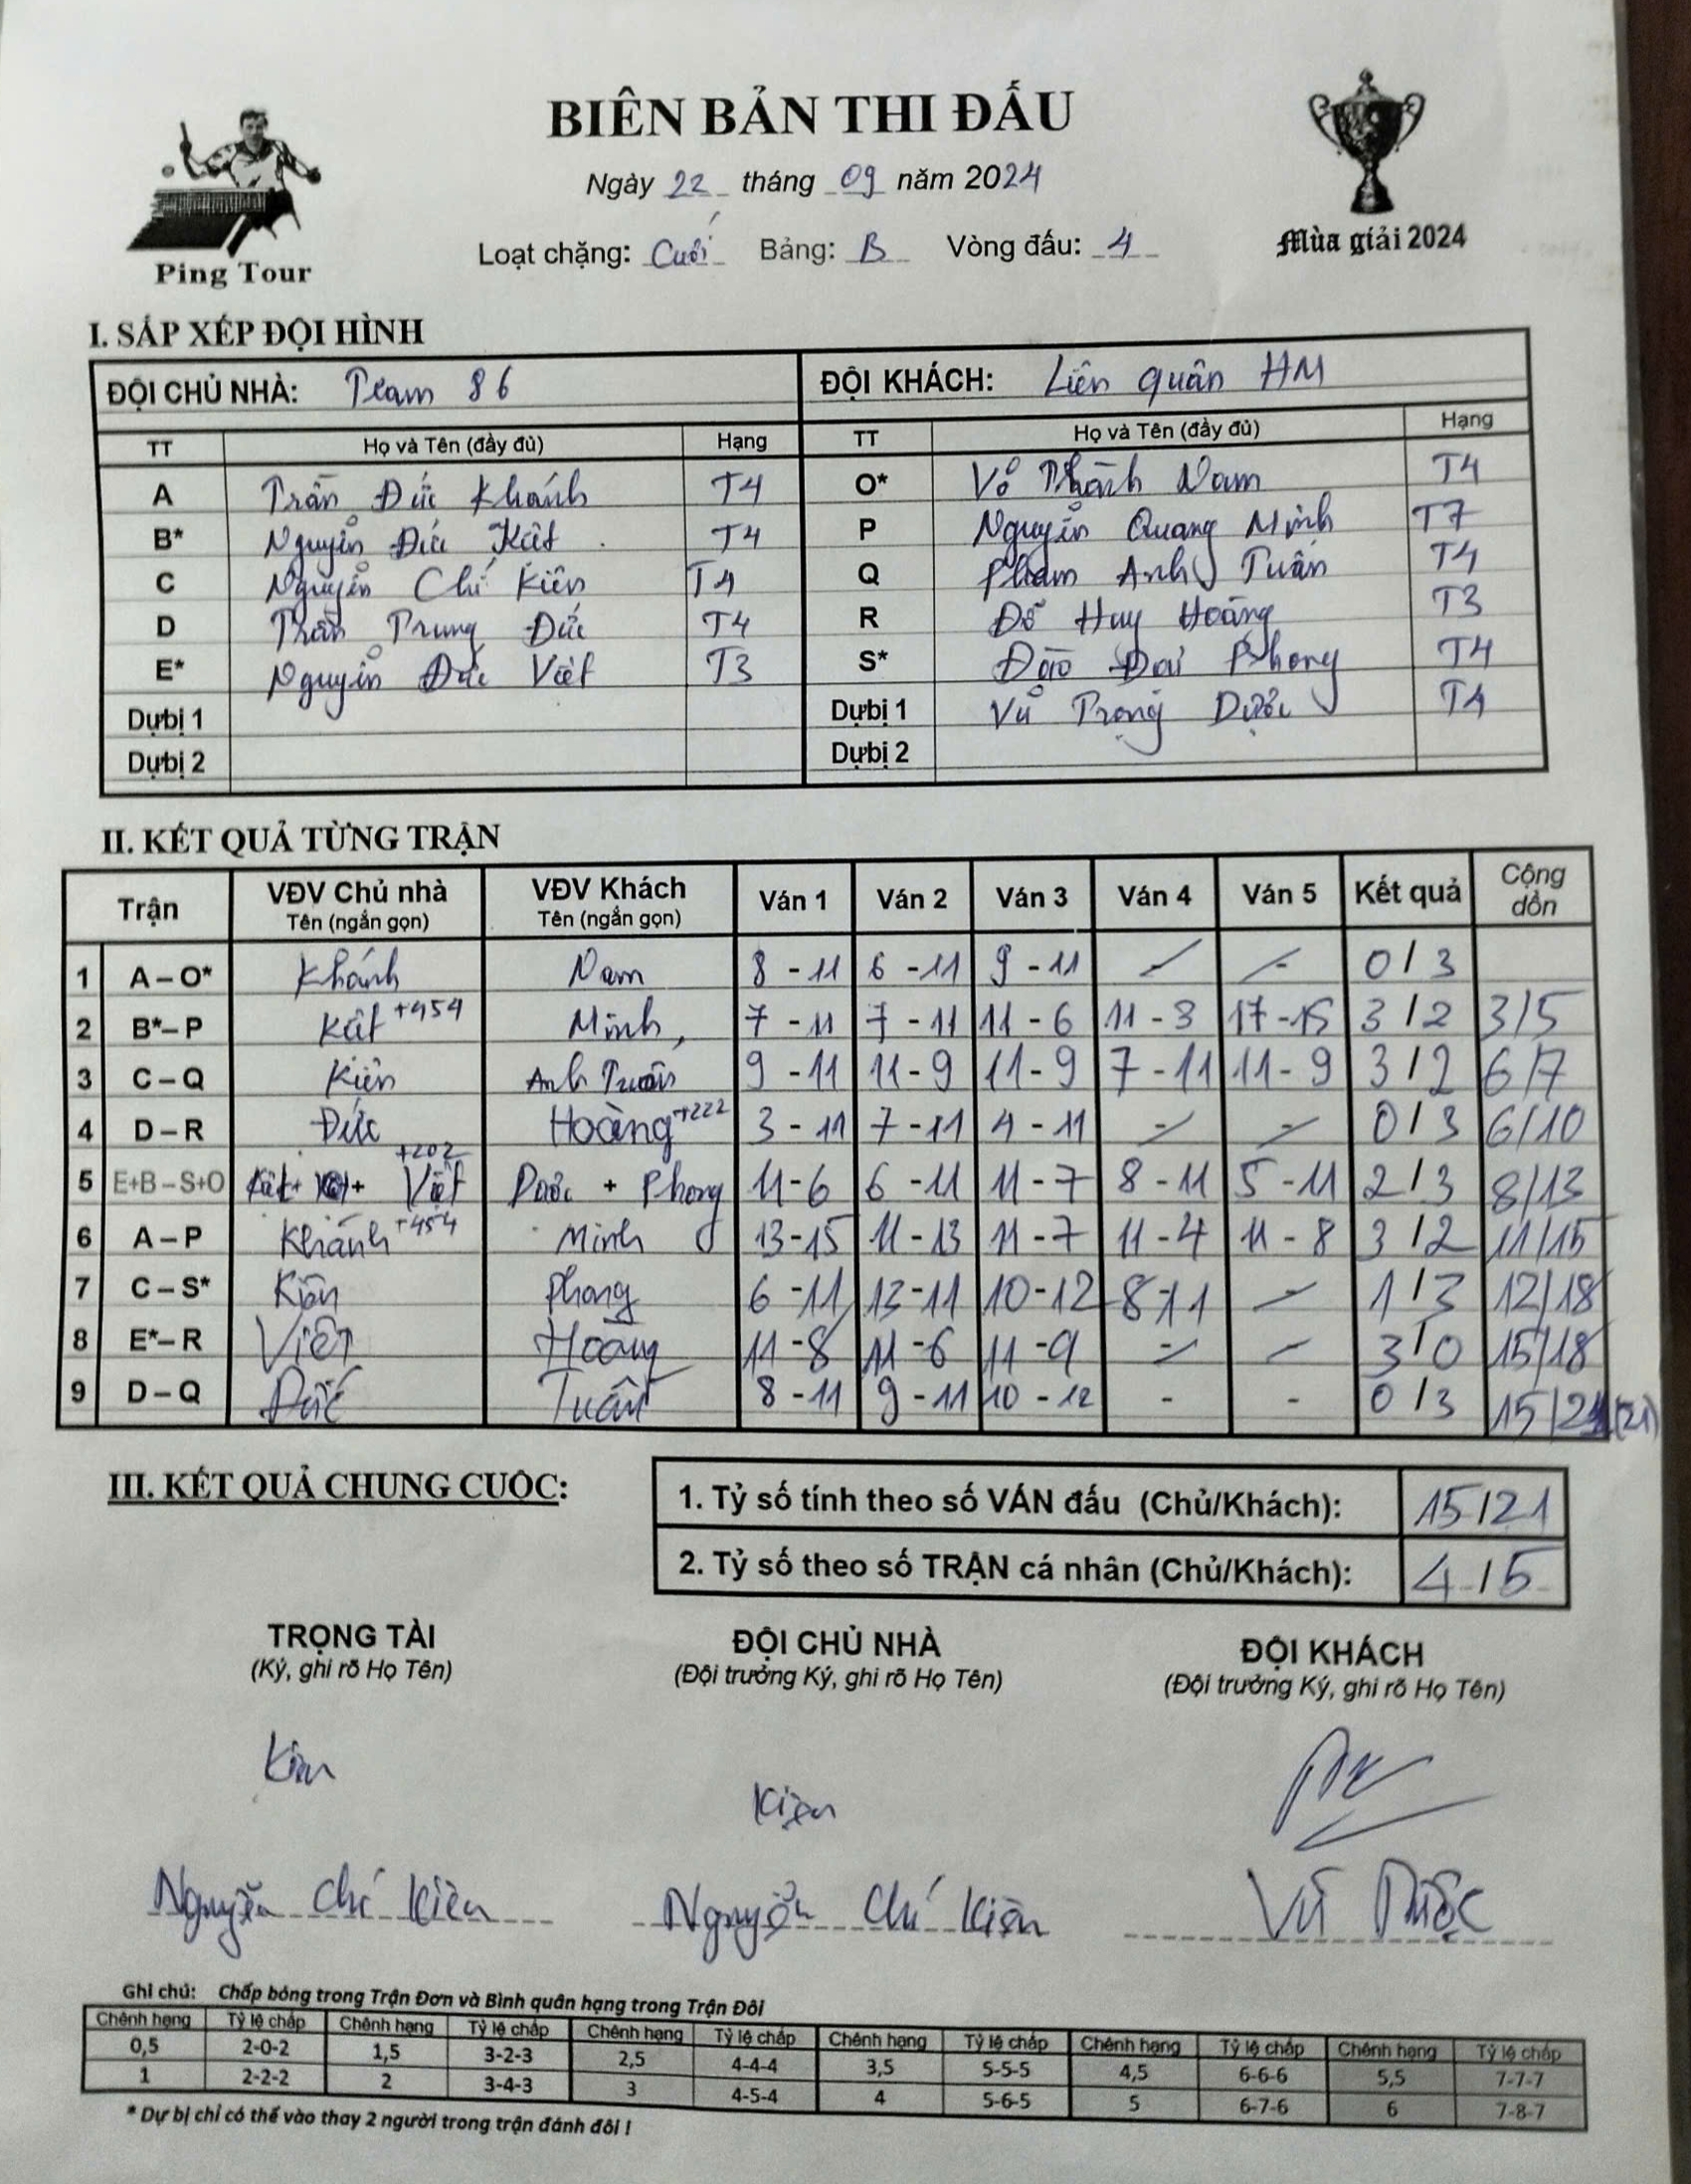 BIÊN BẢN THI ĐẤU
Ngày 22 tháng 09 năm 2024
Loạt chặng: Cuối Bảng: B Vòng đấu: 4
Ping Tour
Mùa giải 2024
I. SẮP XẾP ĐỘI HÌNH
ĐỘI CHỦ NHÀ: Team 86 ĐỘI KHÁCH: Liên quân HM
TT Họ và Tên (đầy đủ) Hạng TT Họ và Tên (đầy đủ) Hạng
A Trần Đức Khánh T4 O* Võ Thành Nam T4
B* Nguyễn Đức Kát T4 P Nguyễn Quang Minh T7
C Nguyễn Chí Kiên T4 Q Phạm Anh Tuấn T4
D Trần Trung Đức T4 R Đỗ Huy Hoàng T3
E* Nguyễn Đức Việt T3 S* Đào Đại Phong T4
Dự bị 1 Dự bị 1 Vũ Trọng Dược T4
Dự bị 2 Dự bị 2
II. KẾT QUẢ TỪNG TRẬN
Trận VĐV Chủ nhà VĐV Khách Ván 1 Ván 2 Ván 3 Ván 4 Ván 5 Kết quả Cộng dồn
Tên (ngắn gọn) Tên (ngắn gọn)
1 A – O* Khánh Nam 8 - 11 6 - 11 9 - 11 - - 0 / 3
2 B* – P Kát +454 Minh 7 - 11 7 - 11 11 - 6 11 - 3 17 - 15 3 / 2 3/5
3 C – Q Kiên Anh Tuấn 9 - 11 11 - 9 11 - 9 7 - 11 11 - 9 3 / 2 6/7
4 D – R Đức Hoàng +222 3 - 11 7 - 11 4 - 11 - - 0 / 3 6/10
5 E+B – S+O Kát + Việt +202 Dược + Phong 11 - 6 6 - 11 11 - 7 8 - 11 5 - 11 2 / 3 8/13
6 A – P Khánh +454 Minh 13 - 15 11 - 13 11 - 7 11 - 4 11 - 8 3 / 2 11/15
7 C – S* Kiên Phong 6 - 11 13 - 11 10 - 12 8 - 11 - 1 / 3 12/18
8 E* – R Việt Hoàng 11 - 8 11 - 6 11 - 9 - - 3 / 0 15/18
9 D – Q Đức Tuấn 8 - 11 9 - 11 10 - 12 - - 0 / 3 15/21 (21)
III. KẾT QUẢ CHUNG CUỘC:
1. Tỷ số tính theo số VÁN đấu (Chủ/Khách): 15/21
2. Tỷ số theo số TRẬN cá nhân (Chủ/Khách): 4/5
TRỌNG TÀI ĐỘI CHỦ NHÀ ĐỘI KHÁCH
(Ký, ghi rõ Họ Tên) (Đội trưởng Ký, ghi rõ Họ Tên) (Đội trưởng Ký, ghi rõ Họ Tên)
Kiên Kiên
Nguyễn Chí Kiên Nguyễn Chí Kiên Vũ Dược
Ghi chú: Chấp bóng trong Trận Đơn và Bình quân hạng trong Trận Đôi
Chênh hạng Tỷ lệ chấp Chênh hạng Tỷ lệ chấp Chênh hạng Tỷ lệ chấp Chênh hạng Tỷ lệ chấp Chênh hạng Tỷ lệ chấp Chênh hạng Tỷ lệ chấp
0,5 2-0-2 1,5 3-2-3 2,5 4-4-4 3,5 5-5-5 4,5 6-6-6 5,5 7-7-7
1 2-2-2 2 3-4-3 3 4-5-4 4 5-6-5 5 6-7-6 6 7-8-7
* Dự bị chỉ có thể vào thay 2 người trong trận đánh đôi !